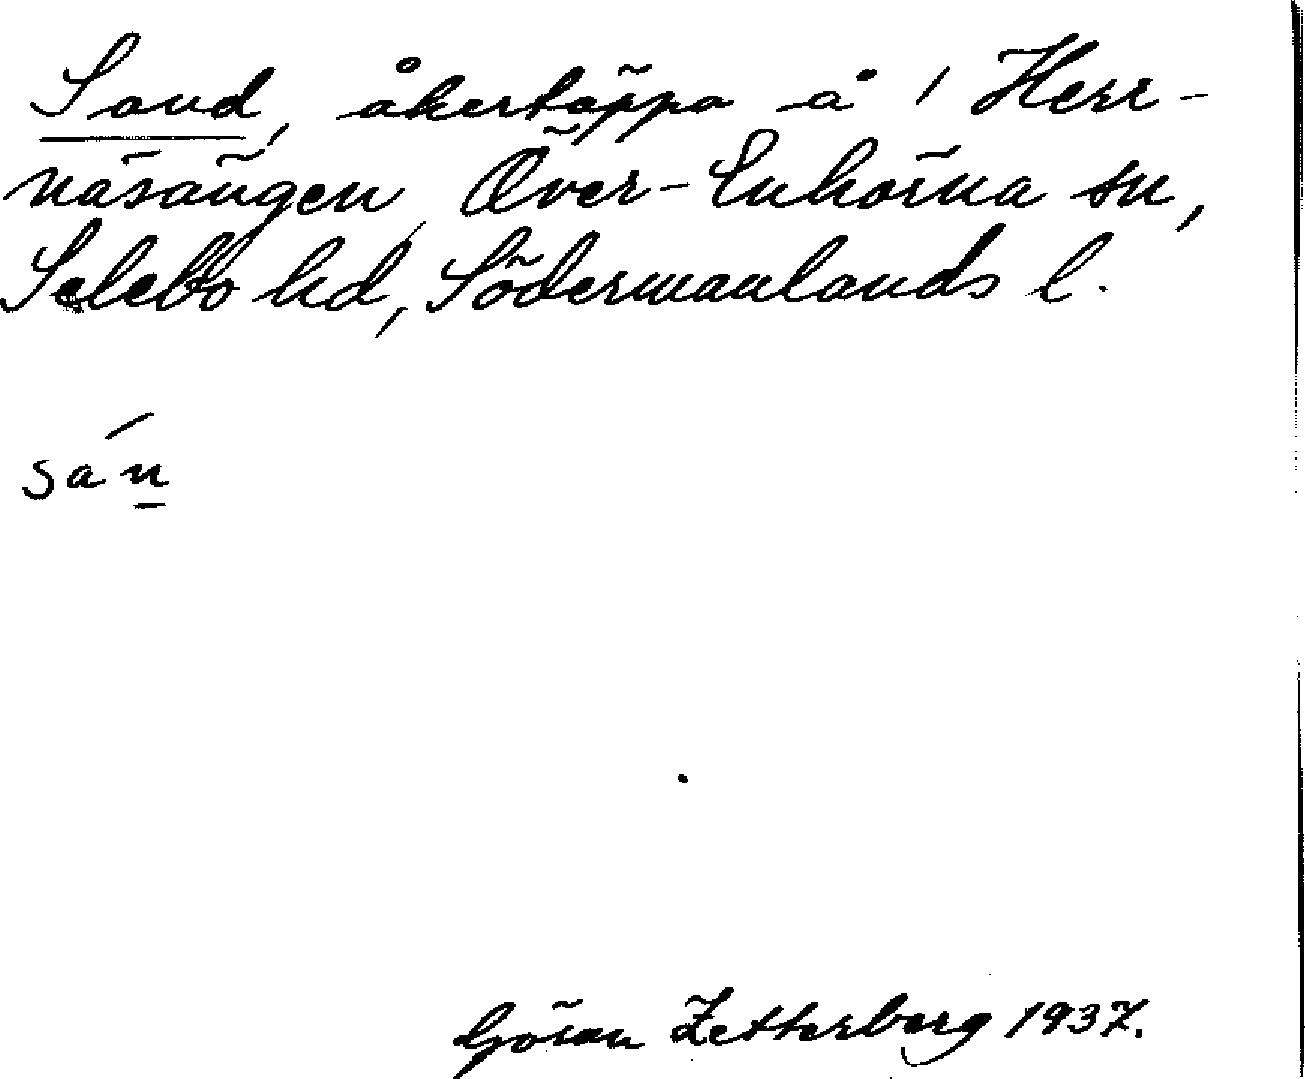 Sand, åkertäppa å / Herr-
näsängen, Över-Enhörna sn,
Selebo hd, Södermanlands l.
sán̲
Göran Zetterberg 1937.